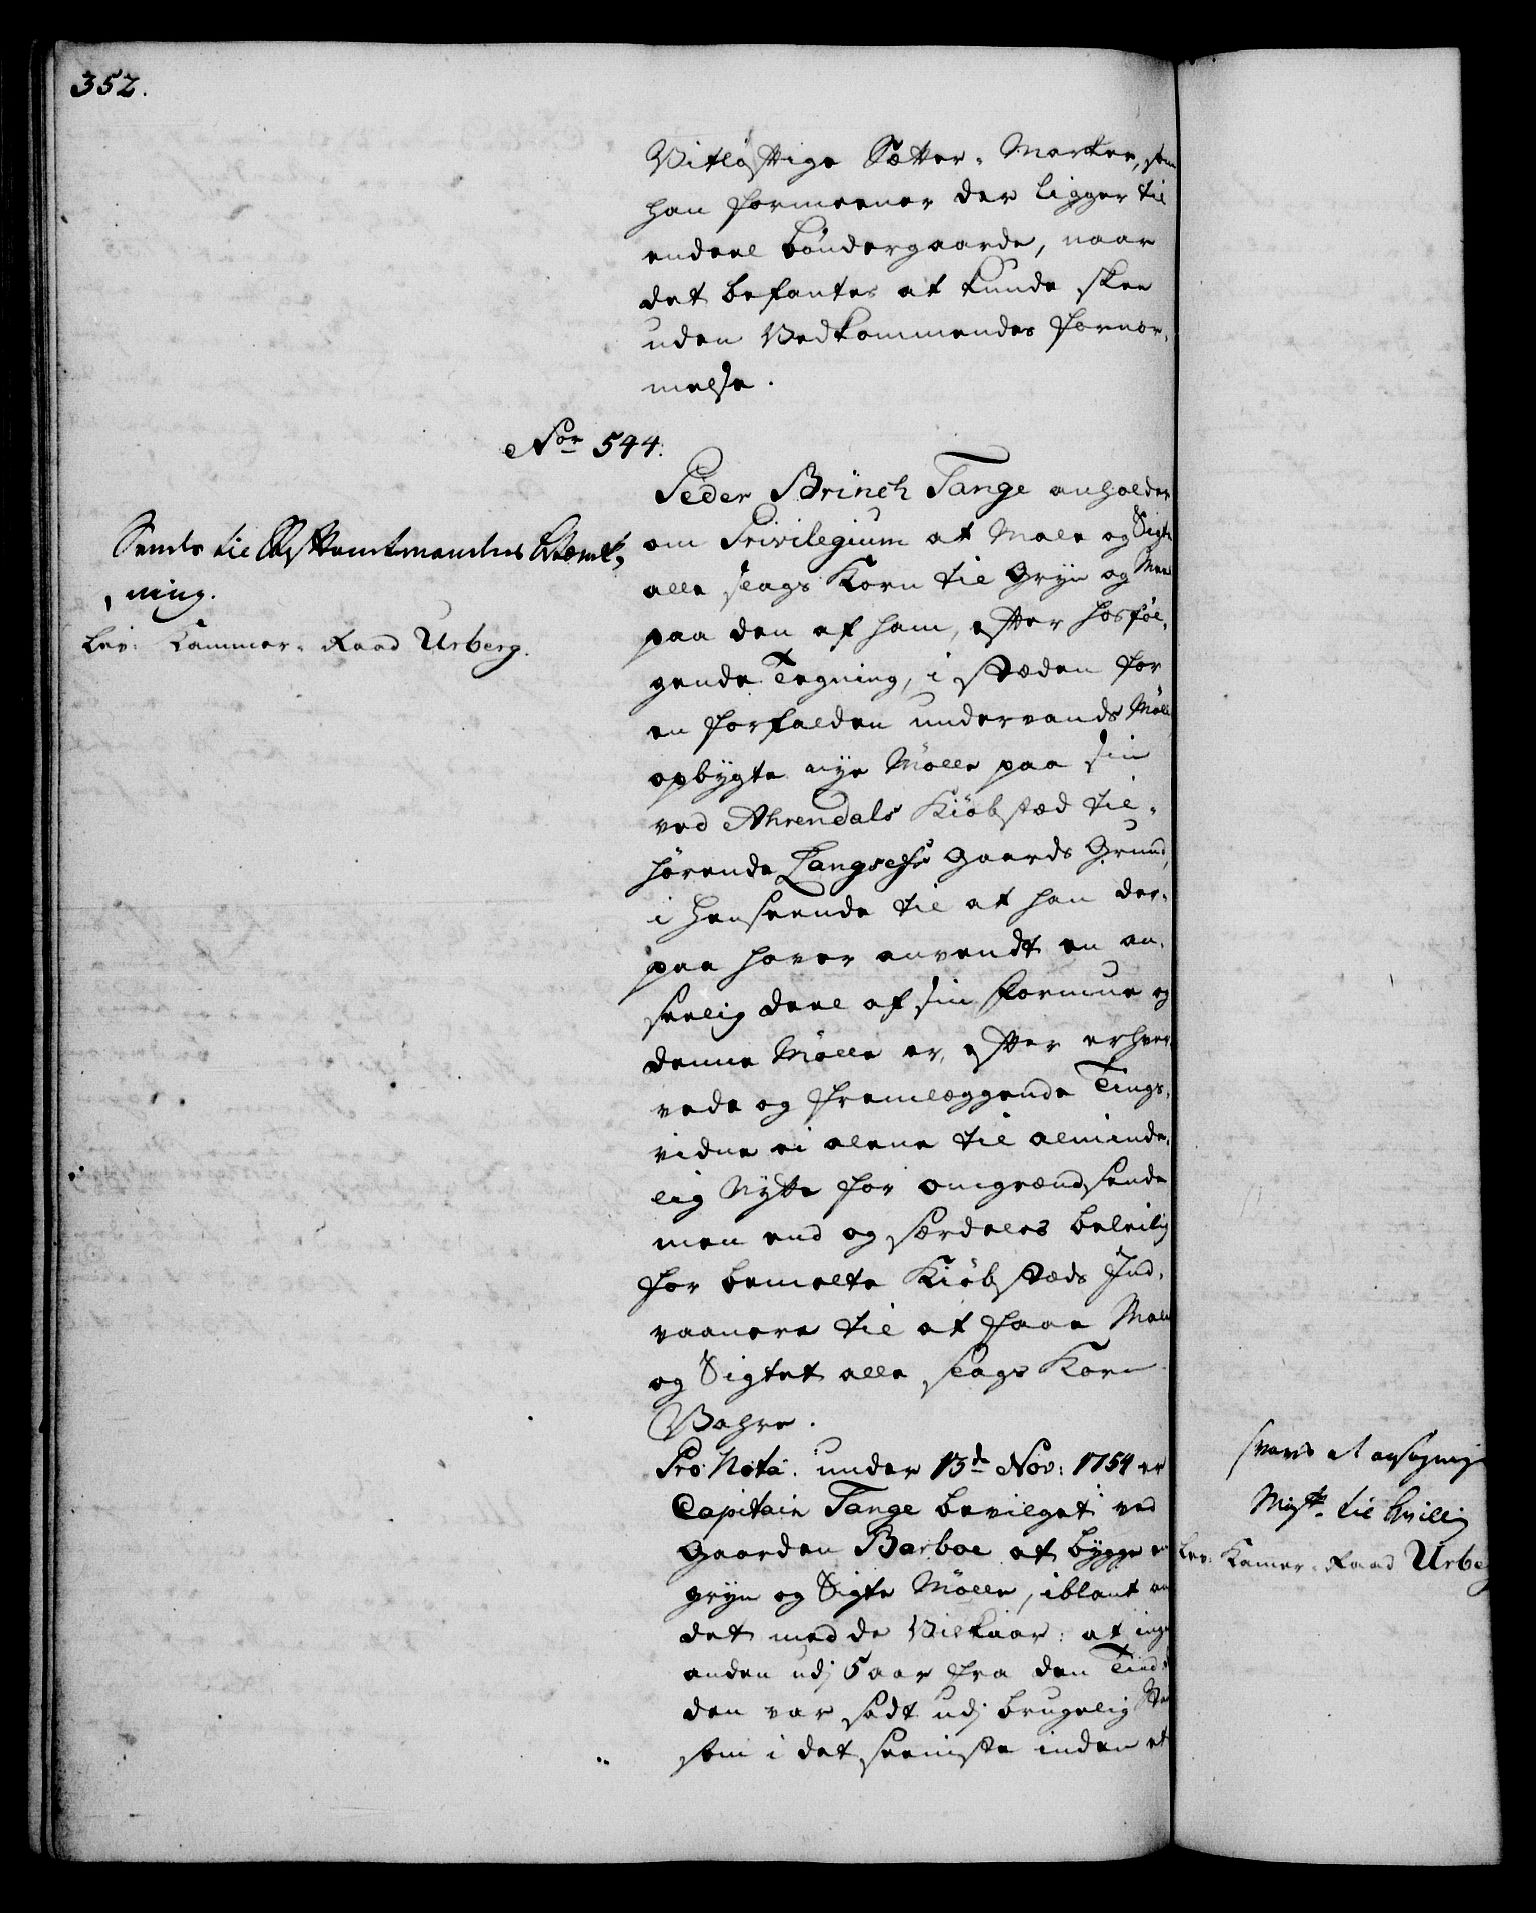 352.
Vitløftige Sætter-Marker, som
han formeener der ligger til
endeel bøndergaarde, naar
det befantes at kunde skee
uden Vedkommendes fornær-
melse.
Nor 544.
Peder Brinch Tange anholder
om Privilegium at Male og Sigte
alle slags Korn til Gryn og Meel
paa den af ham, efter hosføl-
gende Tegning, i stæden for
en forfalden undervands Mølle
opbygte nye Mølle paa sin
ved Ahrendals Kiøbstæd til-
hørende Langsehs Gaards Grund,
i henseende til at han der-
paa haver anvendt en an-
seelig deel af sin formue og
denne Mølle er, efter erhver-
vede og fremlæggende Tings-
vidne ei alene til alminde-
lig Nytte for omgrændsende
men end og særdeles beleilig
for bemelte Kiøbstæds Ind-
vaanere til at faae Malet
og Sigtet alle slags Korn
Vahre.
Pro Nota. under 13de Nov: 1754 er
Capitain Tange bevilget ved
Gaarden Barboe at bygge en
gryn og Sigte Mølle, iblant an
det med de Vilkaar: at ingen
anden udj 5 aar fra den Tiid
den var sadt udj brugelig Stand
som i det seeniste inden et
Sendes til Stiftamtmandens Betænk-
ning.
Lev: Kammer-Raad Urberg.
svares at ansøgning
til
Lev: Kamer-Raad Urbe